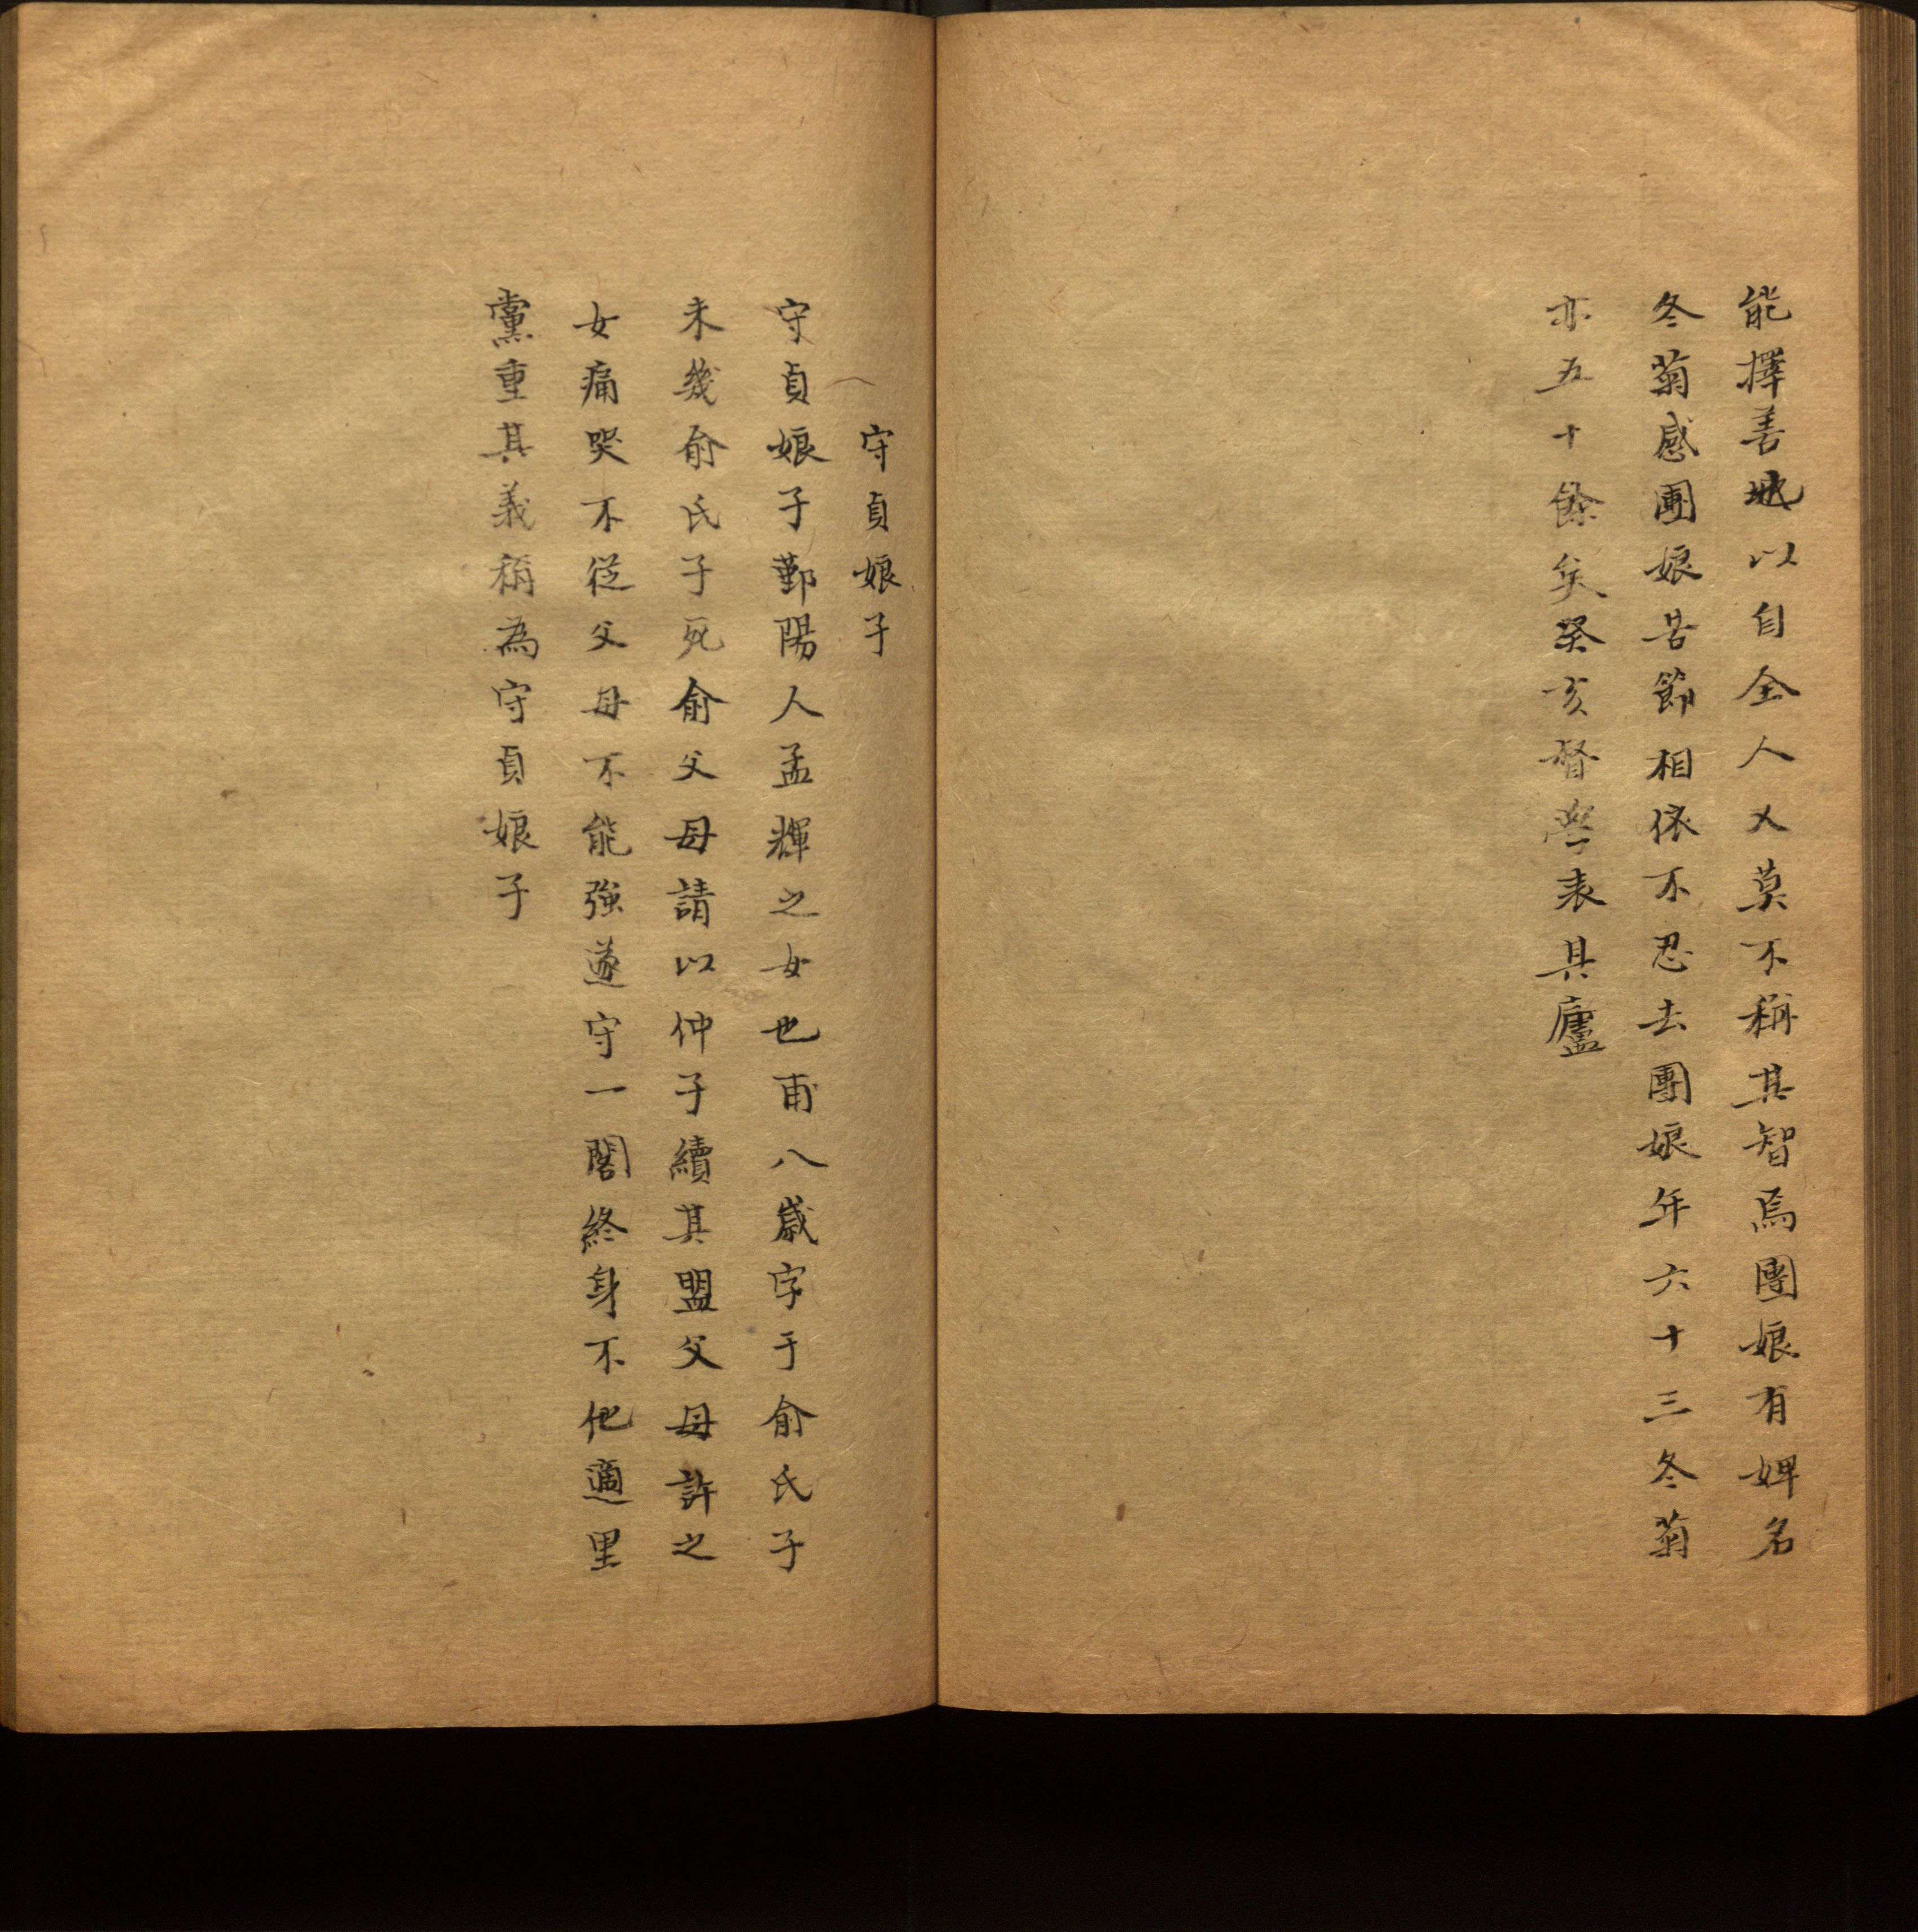 能擇善地以自全人又莫不稱其智焉團娘有婢名
冬菊感團娘苦節相依不忍去團娘年六十三冬菊
亦五十餘矣癸亥督學表其廬
守貞娘子
守貞娘子鄞陽人孟輝之女也甫八歲字于俞氏子
未幾俞氏子死俞父母請以仲子續其盟父母許之
女痛哭不從父母不能強遂守一閣終身不他適里
黨重其義稱為守貞娘子